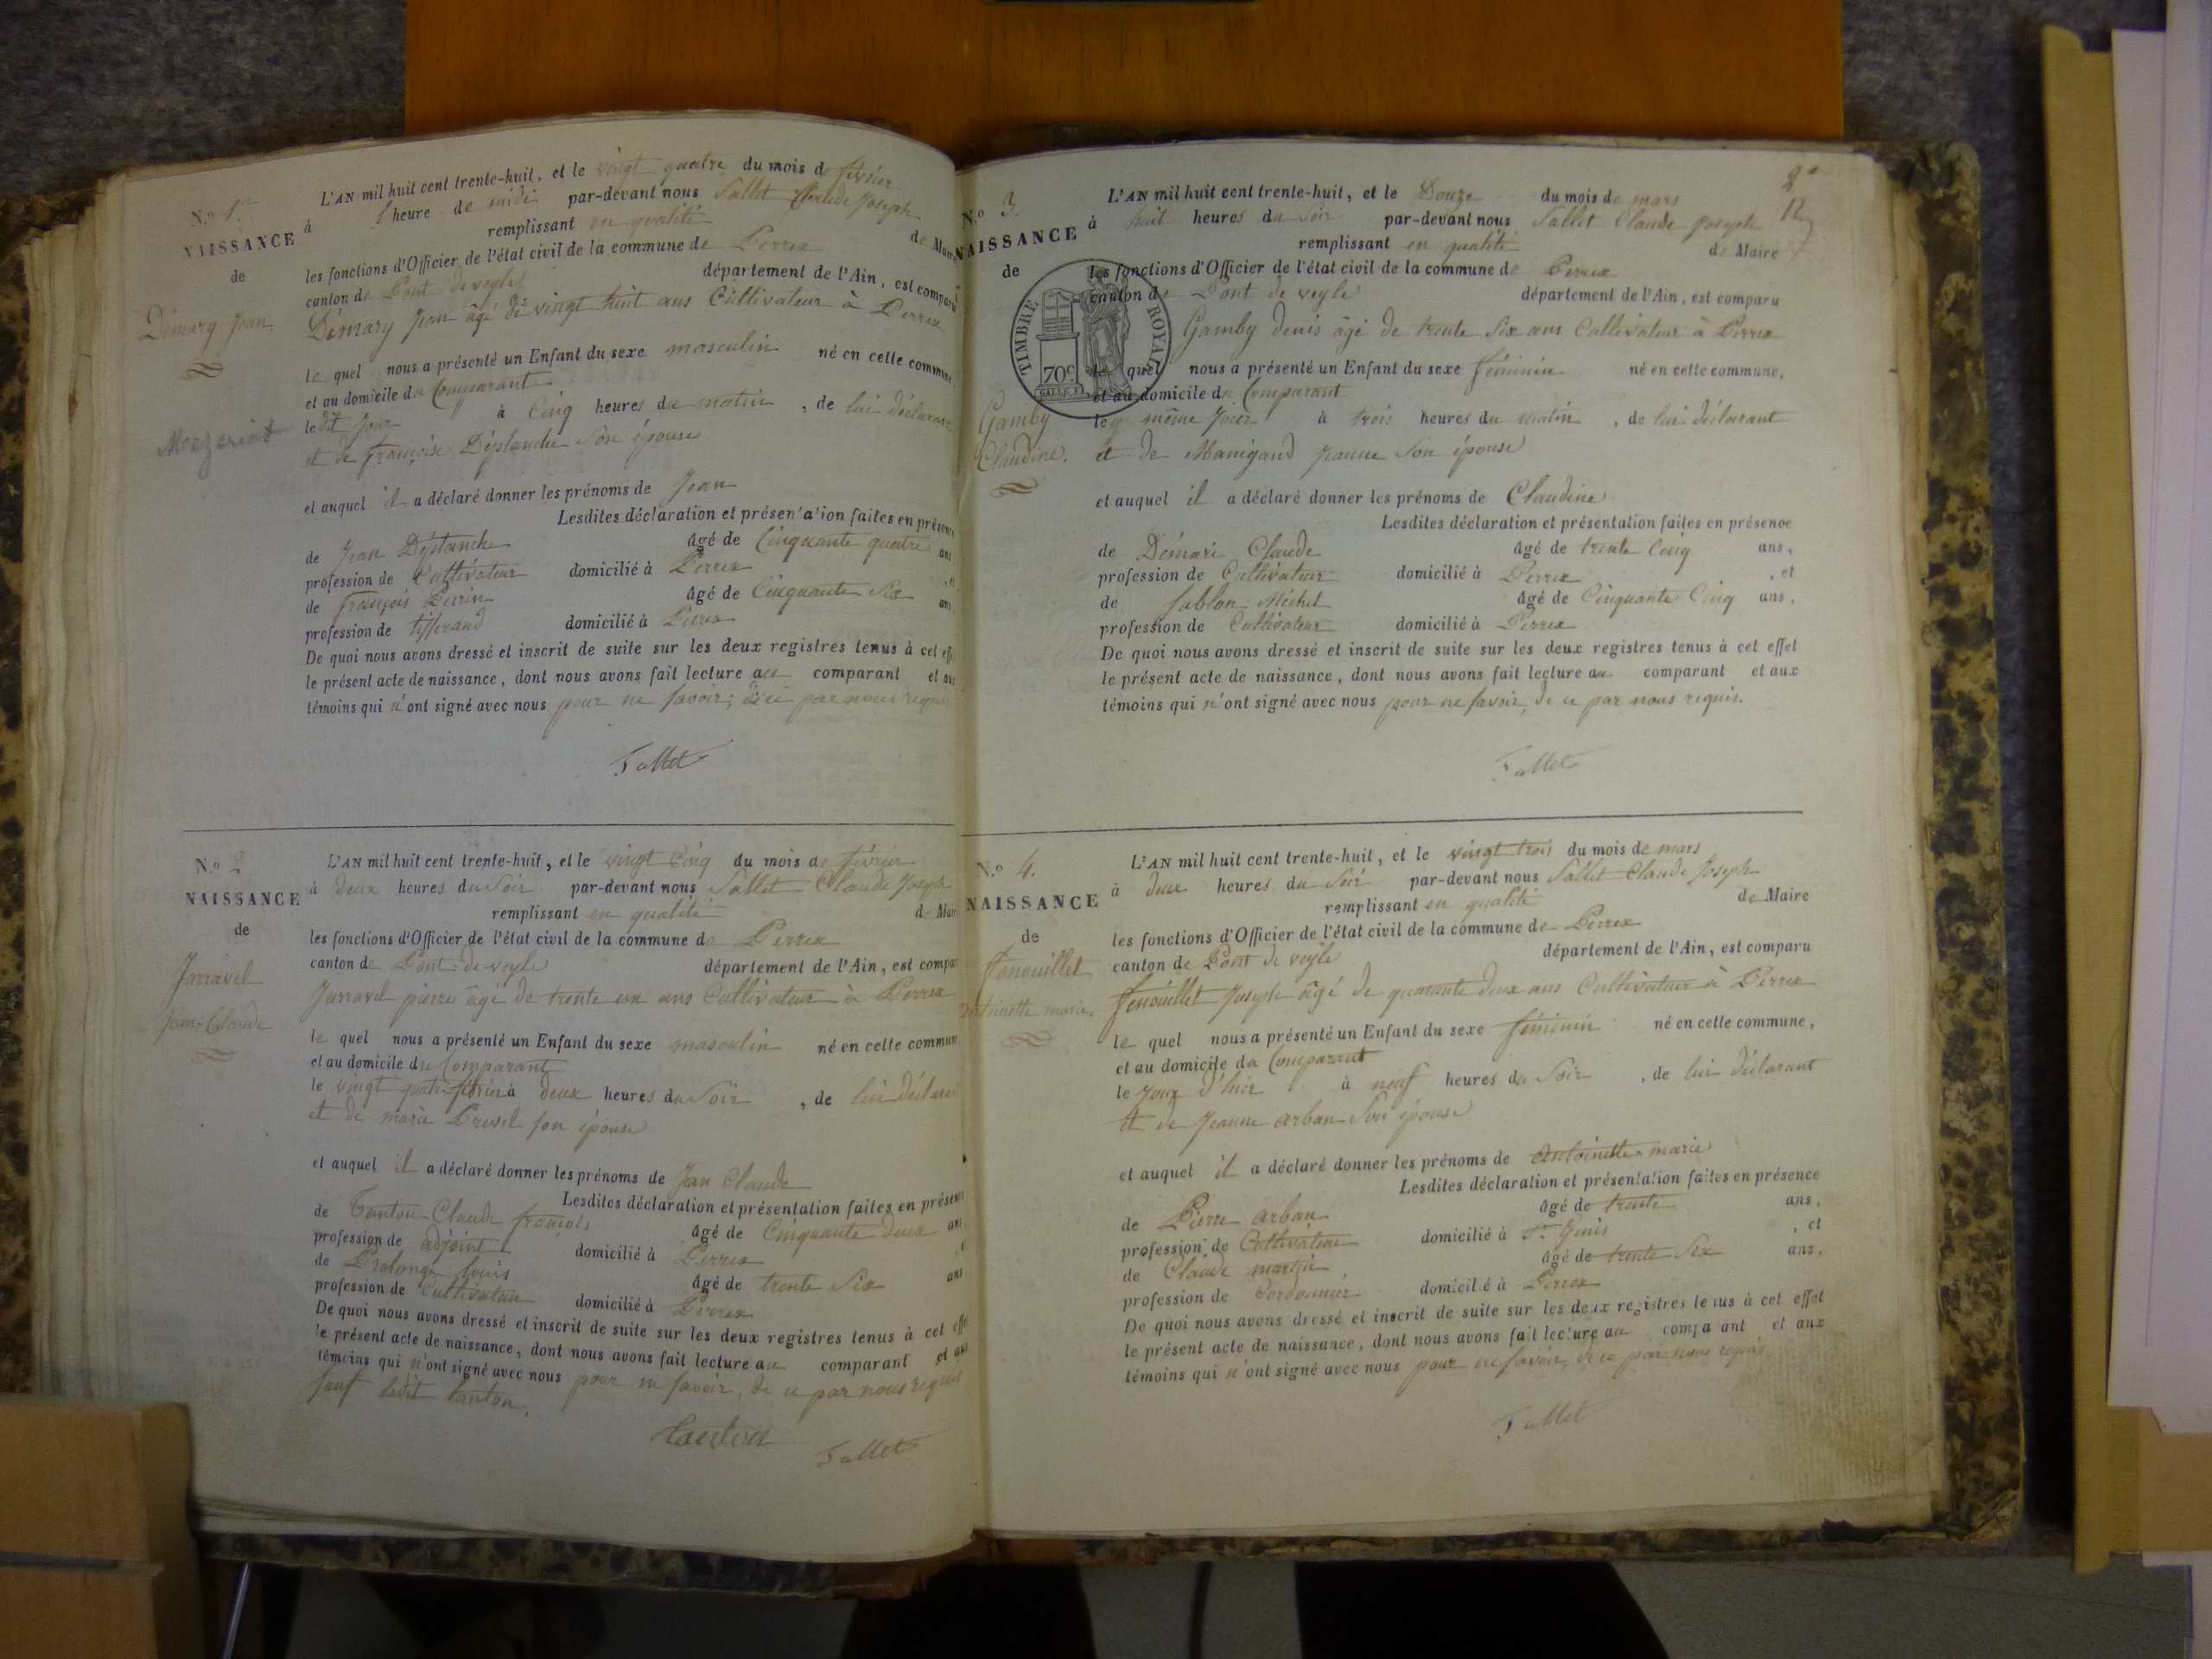 N.o 1.er
NAISSANCE
de
Démary Jean.
Mezeriat
L'AN mil huit cent trente-huit, et le vingt quatre du mois de février
à 1 heure de midi par-devant nous Sallet Claude Joseph
remplissant en qualité de Maire
les fonctions d'Officier de l'état civil de la commune de Perrex
canton de Pont de veyle département de l'Ain, est comparu
Démary Jean âgé de vingt huit ans Cultivateur à Perrex
le quel nous a présenté un Enfant du sexe masculin né en cette commune,
et au domicile du Comparant
le dit jour à Cinq heures du matin, de lui déclarant
et de françoise Déplanche son épouse
et auquel il a déclaré donner les prénoms de Jean
Lesdites déclaration et présentation faites en présence
de Jean Déplanche âgé de Cinquante quatre ans
profession de Cultivateur domicilié à Perrex, et
de françois Perrin âgé de Cinquante Six ans
profession de tisserand domicilié à Perrex
De quoi nous avons dressé et inscrit de suite sur les deux registres tenus à cet eff
le présent acte de naissance, dont nous avons fait lecture au comparant et aux
témoins qui n'ont signé avec nous pour ne savoir, de ce par nous requis
Sallet
N.o 2
NAISSANCE
de
Jarravel
Jean-Claude
L'AN mil huit cent trente-huit, et le vingt Cinq du mois de février
à deux heures du Soir par-devant nous Sallet Claude Joseph
remplissant en qualité de Mai
les fonctions d'Officier de l'état civil de la commune de Perrex
canton de Pont-de-veyle département de l'Ain, est compar
Jarravel pierre âgé de trente un ans Cultivateur à Perrex
le quel nous a présenté un Enfant du sexe masculin né en cette commune
et au domicile du Comparant
le vingt quatre février à deux heures du Soir, de lui déclarant
et de marie Prevel son épouse
et auquel il a déclaré donner les prénoms de Jean Claude
Lesdites déclaration et présentation faites en présence
de Tanton Claude françois âgé de Cinquante deux ans
profession de adjoint domicilié à Perrex
de Prolonge louis âgé de trente Six ans
profession de Cultivateur domicilié à Perrex
De quoi nous avons dressé et inscrit de suite sur les deux registres tenus à cet effe
le présent acte de naissance, dont nous avons fait lecture au comparant et aux
témoins qui n'ont signé avec nous pour ne savoir, de ce par nous requis
sauf ledit tanton.
tanton Sallet
2e
N.o 3.
NAISSANCE
de
TIMBRE ROYAL
70c
Gamby
Claudine.
L'AN mil huit cent trente-huit, et le Douze du mois de mars
à huit heures du Soir par-devant nous Sallet Claude Joseph
remplissant en qualité de Maire
les fonctions d'Officier de l'état civil de la commune de Perrex
canton de Pont de veyle département de l'Ain, est comparu
Gamby denis âgé de trente Six ans Cultivateur à Perrex
le quel nous a présenté un Enfant du sexe féminin né en cette commune,
et au domicile du Comparant
le même jour à trois heures du matin, de lui déclarant
et de Manigand jeanne Son épouse
et auquel il a déclaré donner les prénoms de Claudine
Lesdites déclaration et présentation faites en présence
de Démari Claude âgé de trente Cinq ans,
profession de Cultivateur domicilié à Perrex, et
de Sablon Michel âgé de Cinquante Cinq ans,
profession de Cultivateur domicilié à Perrex
De quoi nous avons dressé et inscrit de suite sur les deux registres tenus à cet effet
le présent acte de naissance, dont nous avons fait lecture au comparant et aux
témoins qui n'ont signé avec nous pour ne savoir, de ce par nous requis.
Sallet
N.o 4.
NAISSANCE
de
fenouillet
antoinette marie.
L'AN mil huit cent trente-huit, et le vingt trois du mois de mars
à deux heures du Soir par-devant nous Sallet Claude Joseph
remplissant en qualité de Maire
les fonctions d'Officier de l'état civil de la commune de Perrex
canton de Pont de veyle département de l'Ain, est comparu
fenouillet Joseph âgé de quarante deux ans Cultivateur à Perrex
le quel nous a présenté un Enfant du sexe féminin né en cette commune,
et au domicile du Comparant
le jour d'hier à neuf heures du Soir, de lui déclarant
et de Jeanne arban Son épouse
et auquel il a déclaré donner les prénoms de antoinette marie
Lesdites déclaration et présentation faites en présence
de Pierre arban âgé de trente ans,
profession de Cultivateur domicilié à St. Genis, et
de Claude martin âgé de trente Six ans,
profession de Cordonnier domicilié à Perrex
De quoi nous avons dressé et inscrit de suite sur les deux registres tenus à cet effet
le présent acte de naissance, dont nous avons fait lecture au comparant et aux
témoins qui n'ont signé avec nous pour ne savoir, de ce par nous requis.
Sallet